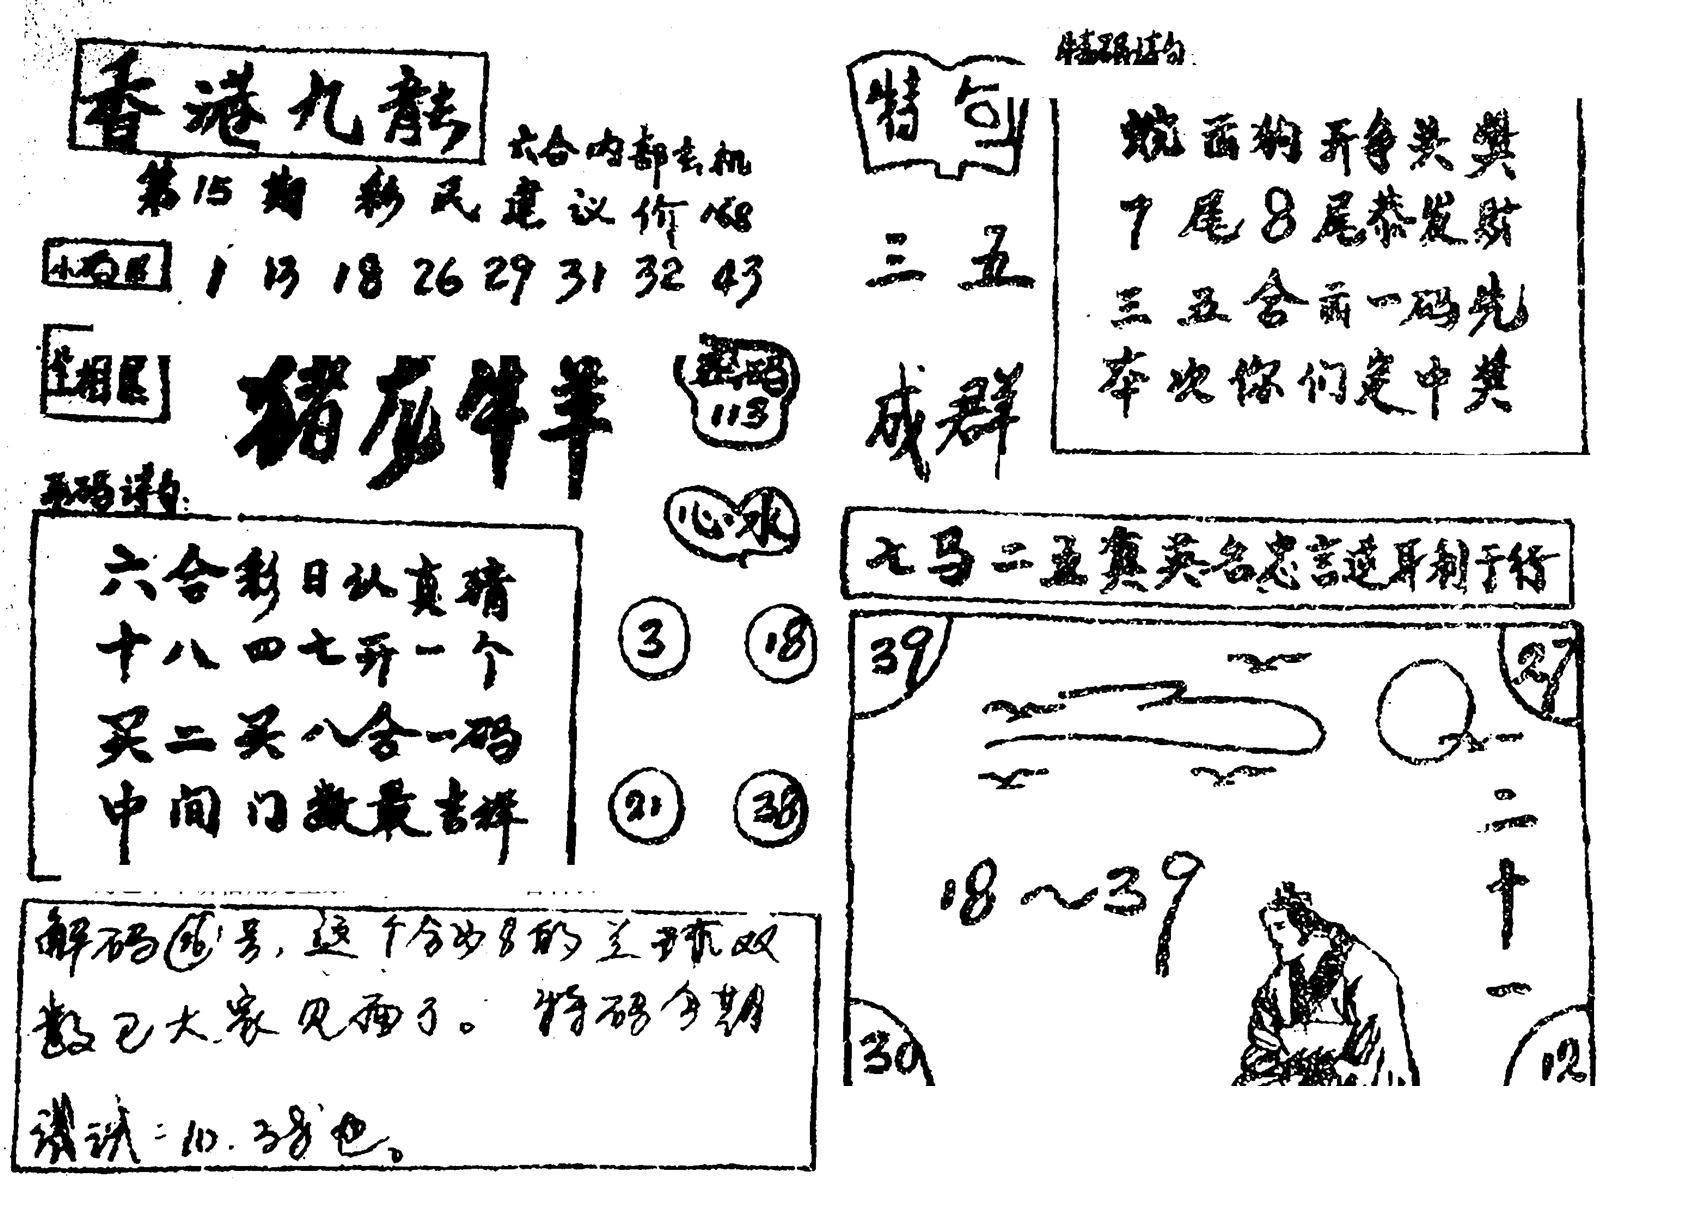 香港九龍
六合内部玄机
第15期 彩民建议价168
1 13 18 26 29 31 32 43
生相尾
猪龙牛羊
113
平码诗句:
心水
六合彩日认真猜
十八四七开一个
买二买八合一码
中间门数最吉祥
3 18
21 38
号,这个合为8的兰球双
数已大家见面了。特码今期
试试:10.38也。
特码诗句
特句
三五
成群
开争英奖
7尾8尾恭发财
三五合前一码先
本次你们定中奖
七马二五真英名忠言逆耳利于行
39 27
18~39
二十一
30 12